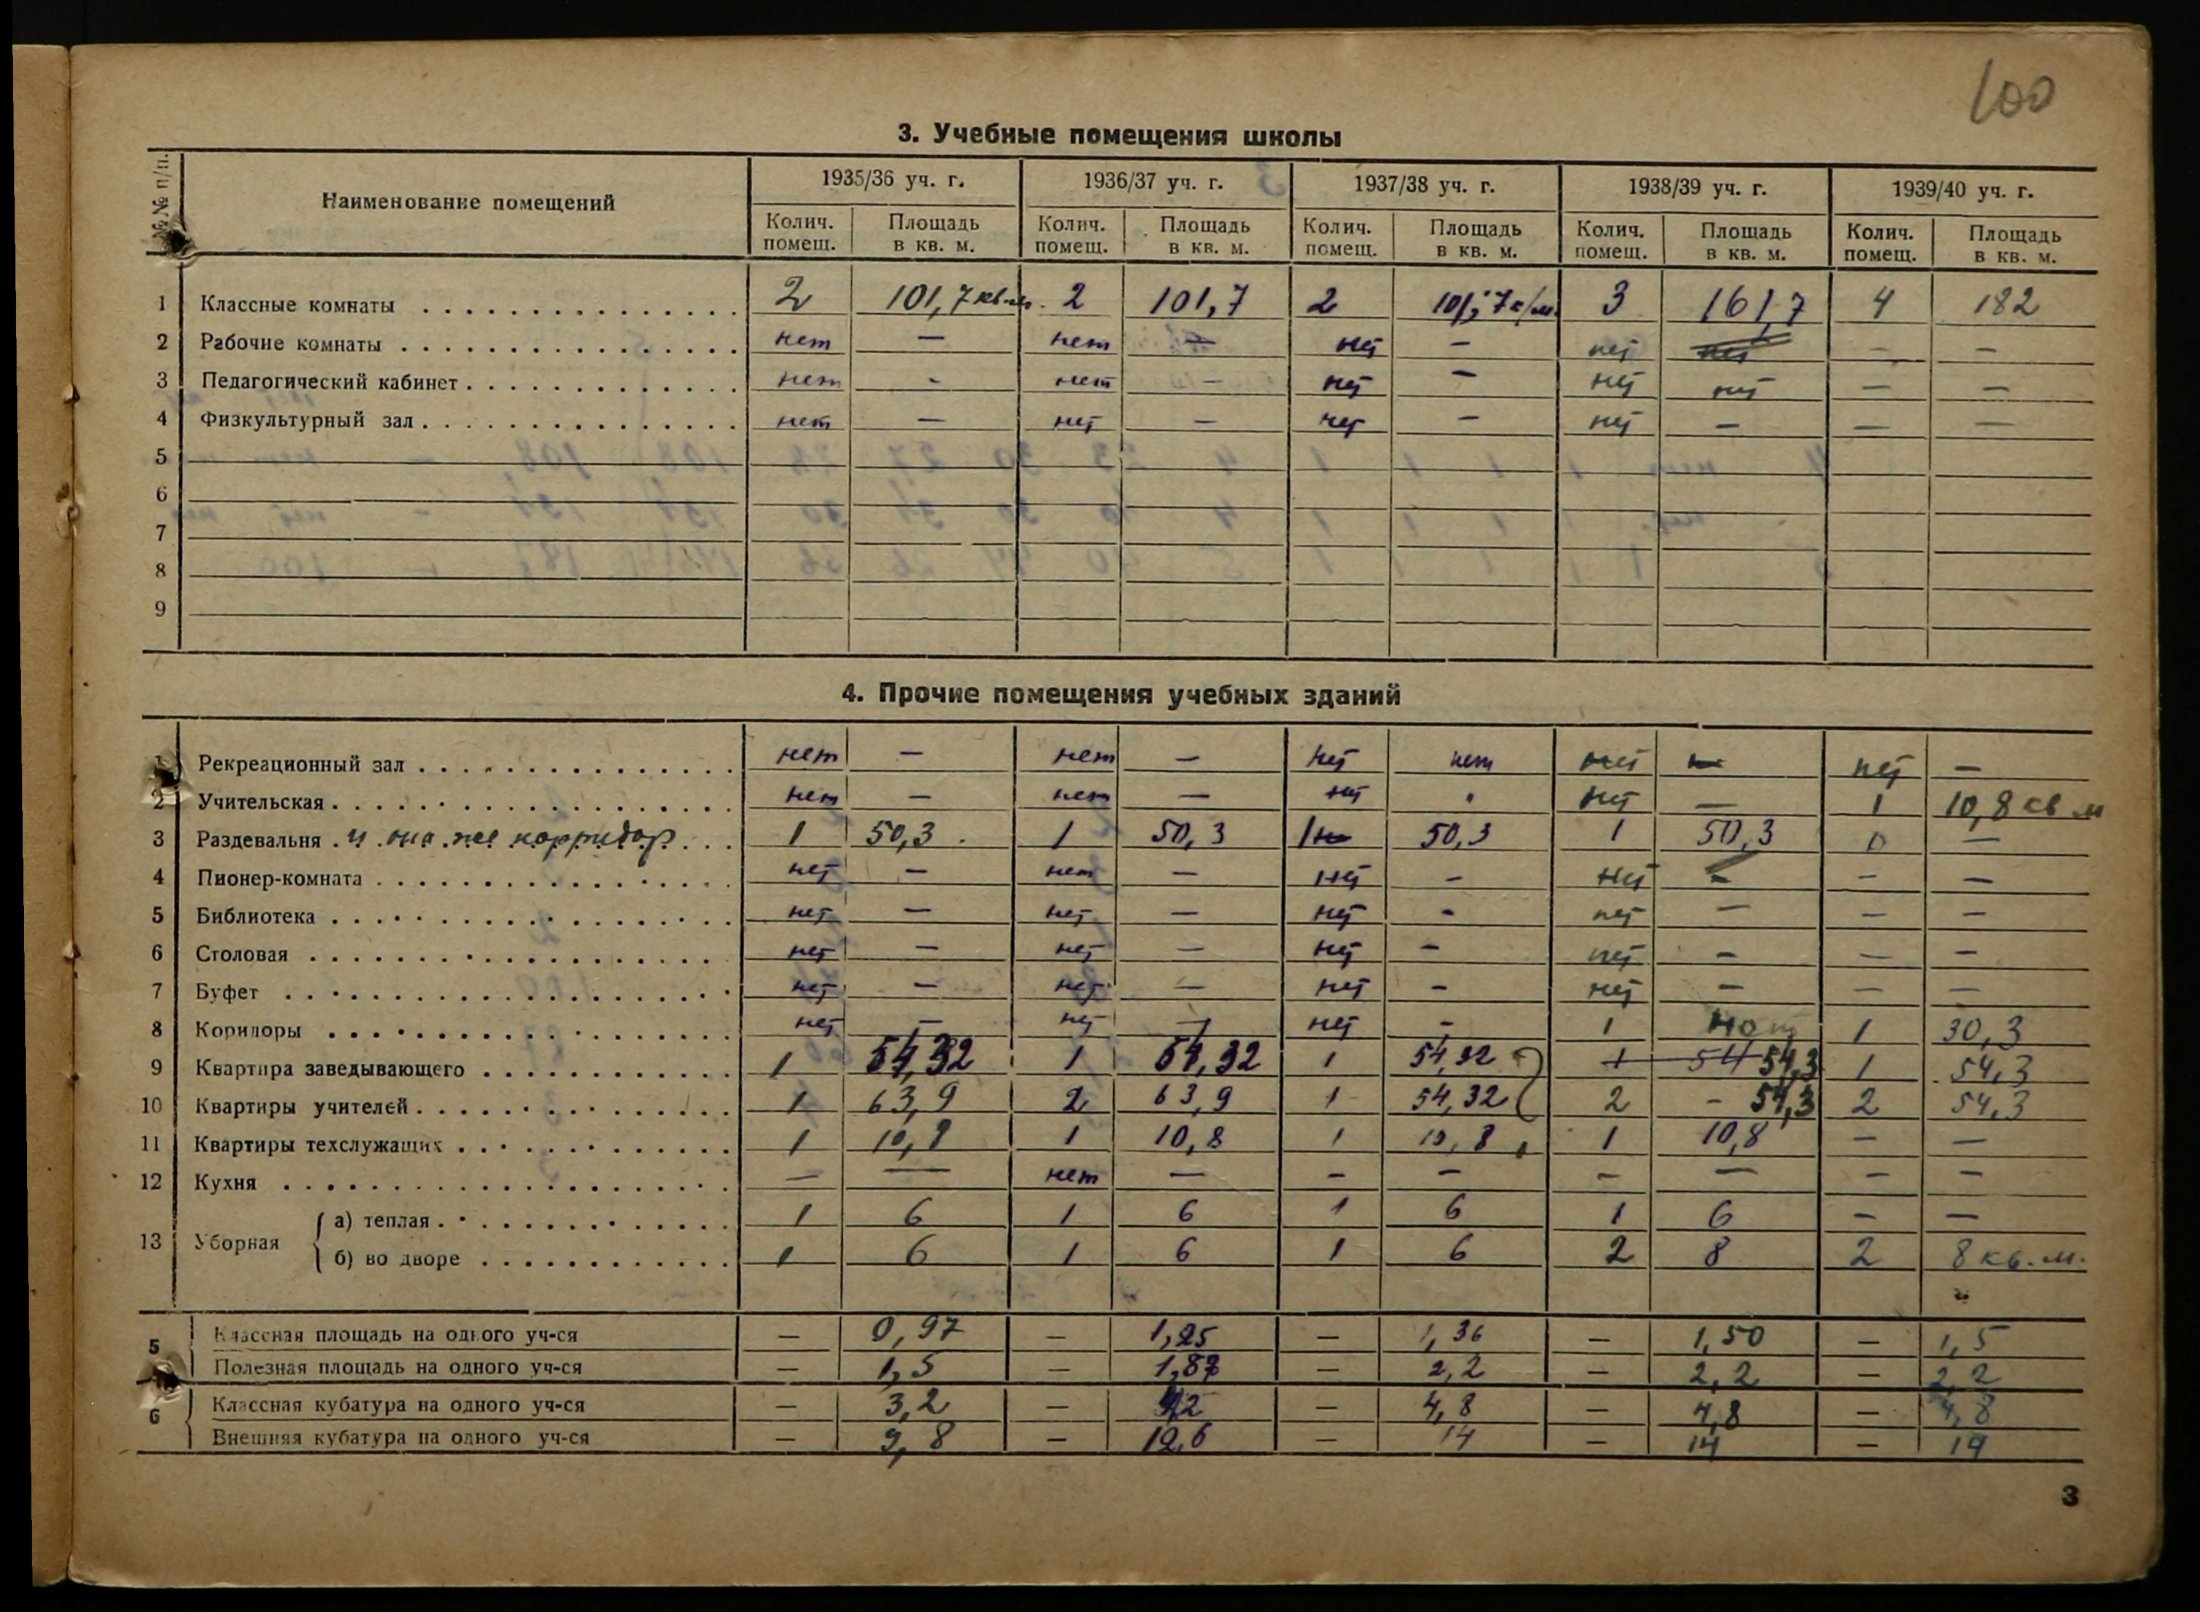 100
3. Учебные помещения школы
№№ п/п. Наименование помещений 1935/36 уч. г. 1936/37 уч. г. 1937/38 уч. г. 1938/39 уч. г. 1939/40 уч. г.
Колич. помещ. Площадь в кв. м. Колич. помещ. Площадь в кв. м. Колич. помещ. Площадь в кв. м. Колич. помещ. Площадь в кв. м. Колич. помещ. Площадь в кв. м.
1 Классные комнаты 2 101,7 кв.м. 2 101,7 2 101,7 к/м. 3 161,7 4 182
2 Рабочие комнаты нет — нет — нет — нет нет — —
3 Педагогический кабинет нет - нет — нет — нет нет — —
4 Физкультурный зал нет — нет — нет — нет — — —
5
6
7
8
9
4. Прочие помещения учебных зданий
1 Рекреационный зал нет — нет — нет нет нет — нет —
2 Учительская нет — нет — нет " нет — 1 10,8 кв м
3 Раздевальня и она же корридор 1 50,3 1 50,3 1 50,3 1 50,3 0 —
4 Пионер-комната нет — нет — нет - нет — — —
5 Библиотека нет — нет — нет - нет — — —
6 Столовая нет — нет — нет — нет — — —
7 Буфет нет — нет — нет — нет — — —
8 Коридоры нет — нет — нет — 1 1 30,3
9 Квартира заведывающего 1 54,32 1 54,32 1 54,32 1 54 54,3 1 54,3
10 Квартиры учителей 1 63,9 2 63,9 1 54,32 2 - 54,3 2 54,3
11 Квартиры техслужащих 1 10,8 1 10,8 1 10,8 1 10,8 — —
12 Кухня — — нет — — — — — — —
13 Уборная а) теплая 1 6 1 6 1 6 1 6 — —
б) во дворе 1 6 1 6 1 6 2 8 2 8 кв. м.
5 Классная площадь на одного уч-ся — 0,97 — 1,25 — 1,36 — 1,50 — 1,5
Полезная площадь на одного уч-ся — 1,5 — 1,87 — 2,2 — 2,2 — 2,2
6 Классная кубатура на одного уч-ся — 3,2 — — 4,8 — 4,8 — 4,8
Внешняя кубатура на одного уч-ся — 9,8 — 12,6 — 14 — 14 — 14
3